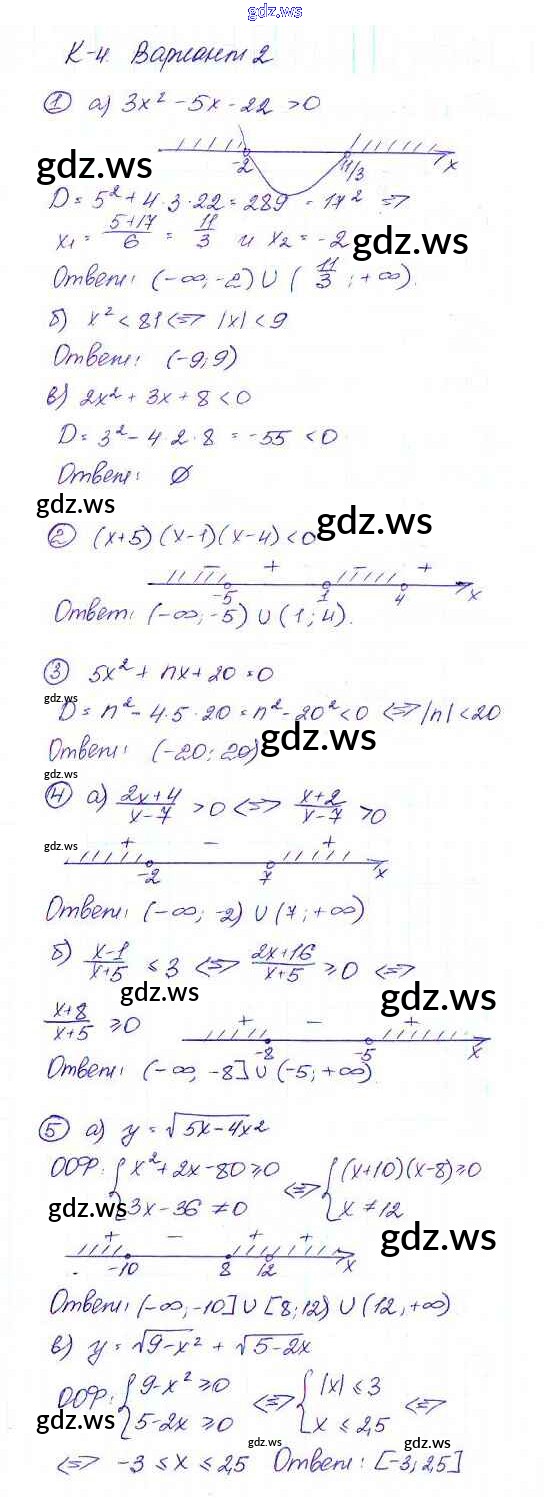 gdz.ws
К-4 Вариант 2
① а) 3x² - 5x - 22 > 0
-2 11/3 x
gdz.ws
D = 5² + 4·3·22 = 289 = 17² ⇒
x₁ = (5+17)/6 = 11/3 и x₂ = -2
gdz.ws
Ответ: (-∞; -2) ∪ (11/3; +∞).
б) x² < 81 ⇔ |x| < 9
Ответ: (-9; 9)
в) 2x² + 3x + 8 < 0
D = 3² - 4·2·8 = -55 < 0
Ответ: ∅
gdz.ws gdz.ws
② (x+5)(x-1)(x-4) < 0
- + - +
-5 1 4 x
Ответ: (-∞; -5) ∪ (1; 4).
③ 5x² + nx + 20 = 0
gdz.ws
D = n² - 4·5·20 = n² - 20² < 0 ⇔ |n| < 20
gdz.ws
Ответ: (-20; 20)
gdz.ws
④ а) (2x+4)/(x-7) > 0 ⇔ (x+2)/(x-7) > 0
gdz.ws
+ - +
-2 7 x
Ответ: (-∞; -2) ∪ (7; +∞)
б) (x-1)/(x+5) ≤ 3 ⇔ (2x+16)/(x+5) ≥ 0 ⇔
gdz.ws gdz.ws
(x+8)/(x+5) ≥ 0
+ - +
-8 -5 x
Ответ: (-∞, -8] ∪ (-5; +∞)
⑤ а) y = √5x-4x2
ООФ: { x² + 2x - 80 ≥ 0 ⇔ { (x+10)(x-8) ≥ 0
3x - 36 ≠ 0 x ≠ 12
gdz.ws gdz.ws
+ - + +
-10 8 12 x
Ответ: (-∞, -10] ∪ [8; 12) ∪ (12, +∞)
в) y = √9-x² + √5-2x
ООФ: { 9 - x² ≥ 0 ⇔ { |x| ≤ 3 ⇔
5 - 2x ≥ 0 x ≤ 2,5
gdz.ws gdz.ws gdz.ws
⇔ -3 ≤ x ≤ 2,5 Ответ: [-3; 2,5]